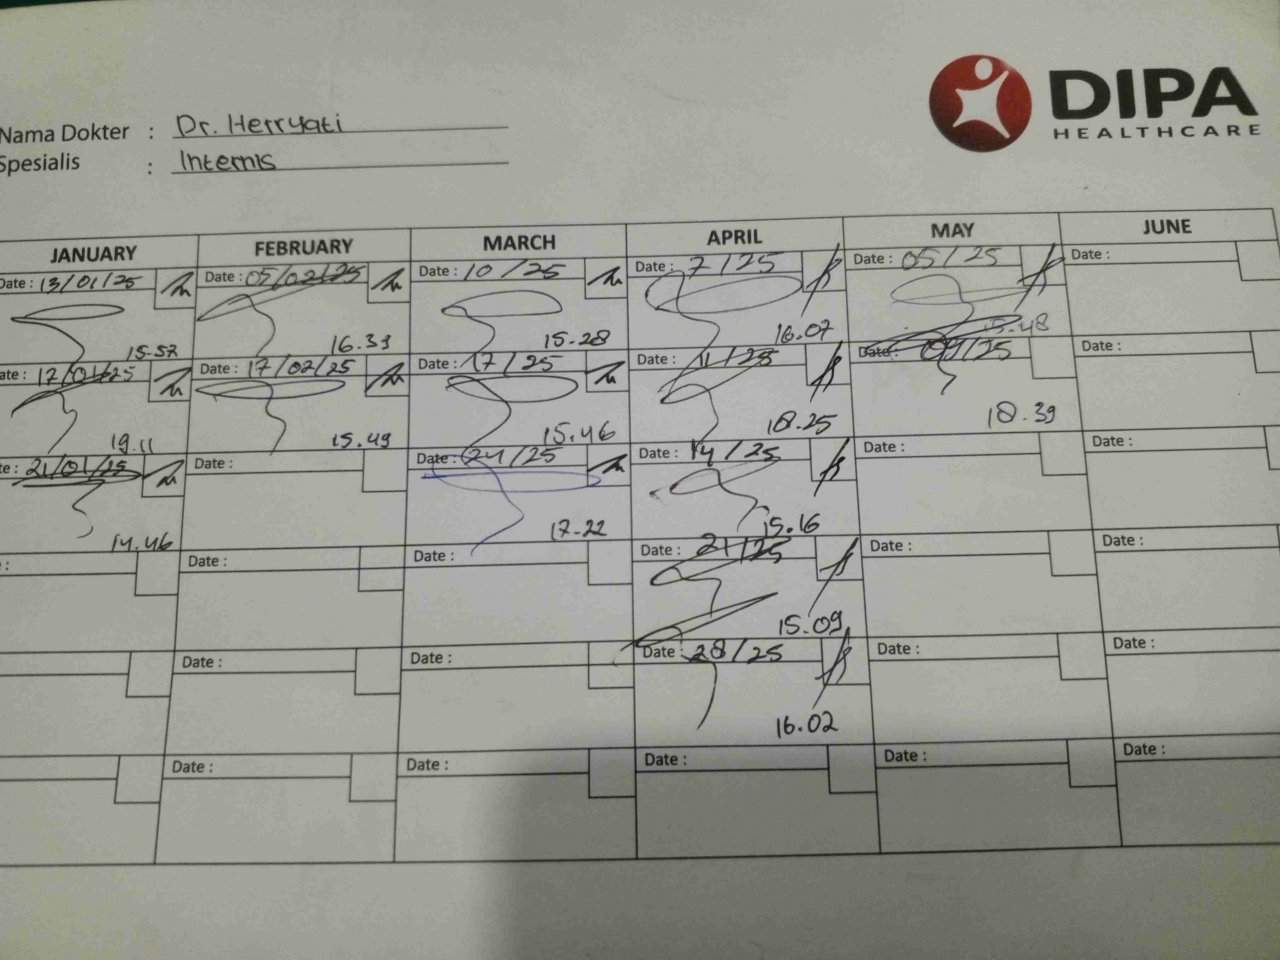 DIPA
HEALTHCARE
Nama Dokter : Dr. Herryati
Spesialis : Internis
JANUARY FEBRUARY MARCH APRIL MAY JUNE
Date : 13/01/25 Date : 05/02/25 Date : 10/25 Date : 7/25 Date : 05/25 Date :
15.57 16.33 15.28 16.07 15.48
ate : 17/01/25 Date : 17/02/25 Date : 17/25 Date : 11/25 Date : 09/25 Date :
19.11 15.49 15.46 18.25 18.39
te : 21/01/25 Date : Date : 24/25 Date : 14/25 Date : Date :
14.46 17.22 15.16
: Date : Date : Date : 21/25 Date : Date :
15.09
Date : Date : Date : 28/25 Date : Date :
16.02
Date : Date : Date : Date : Date :